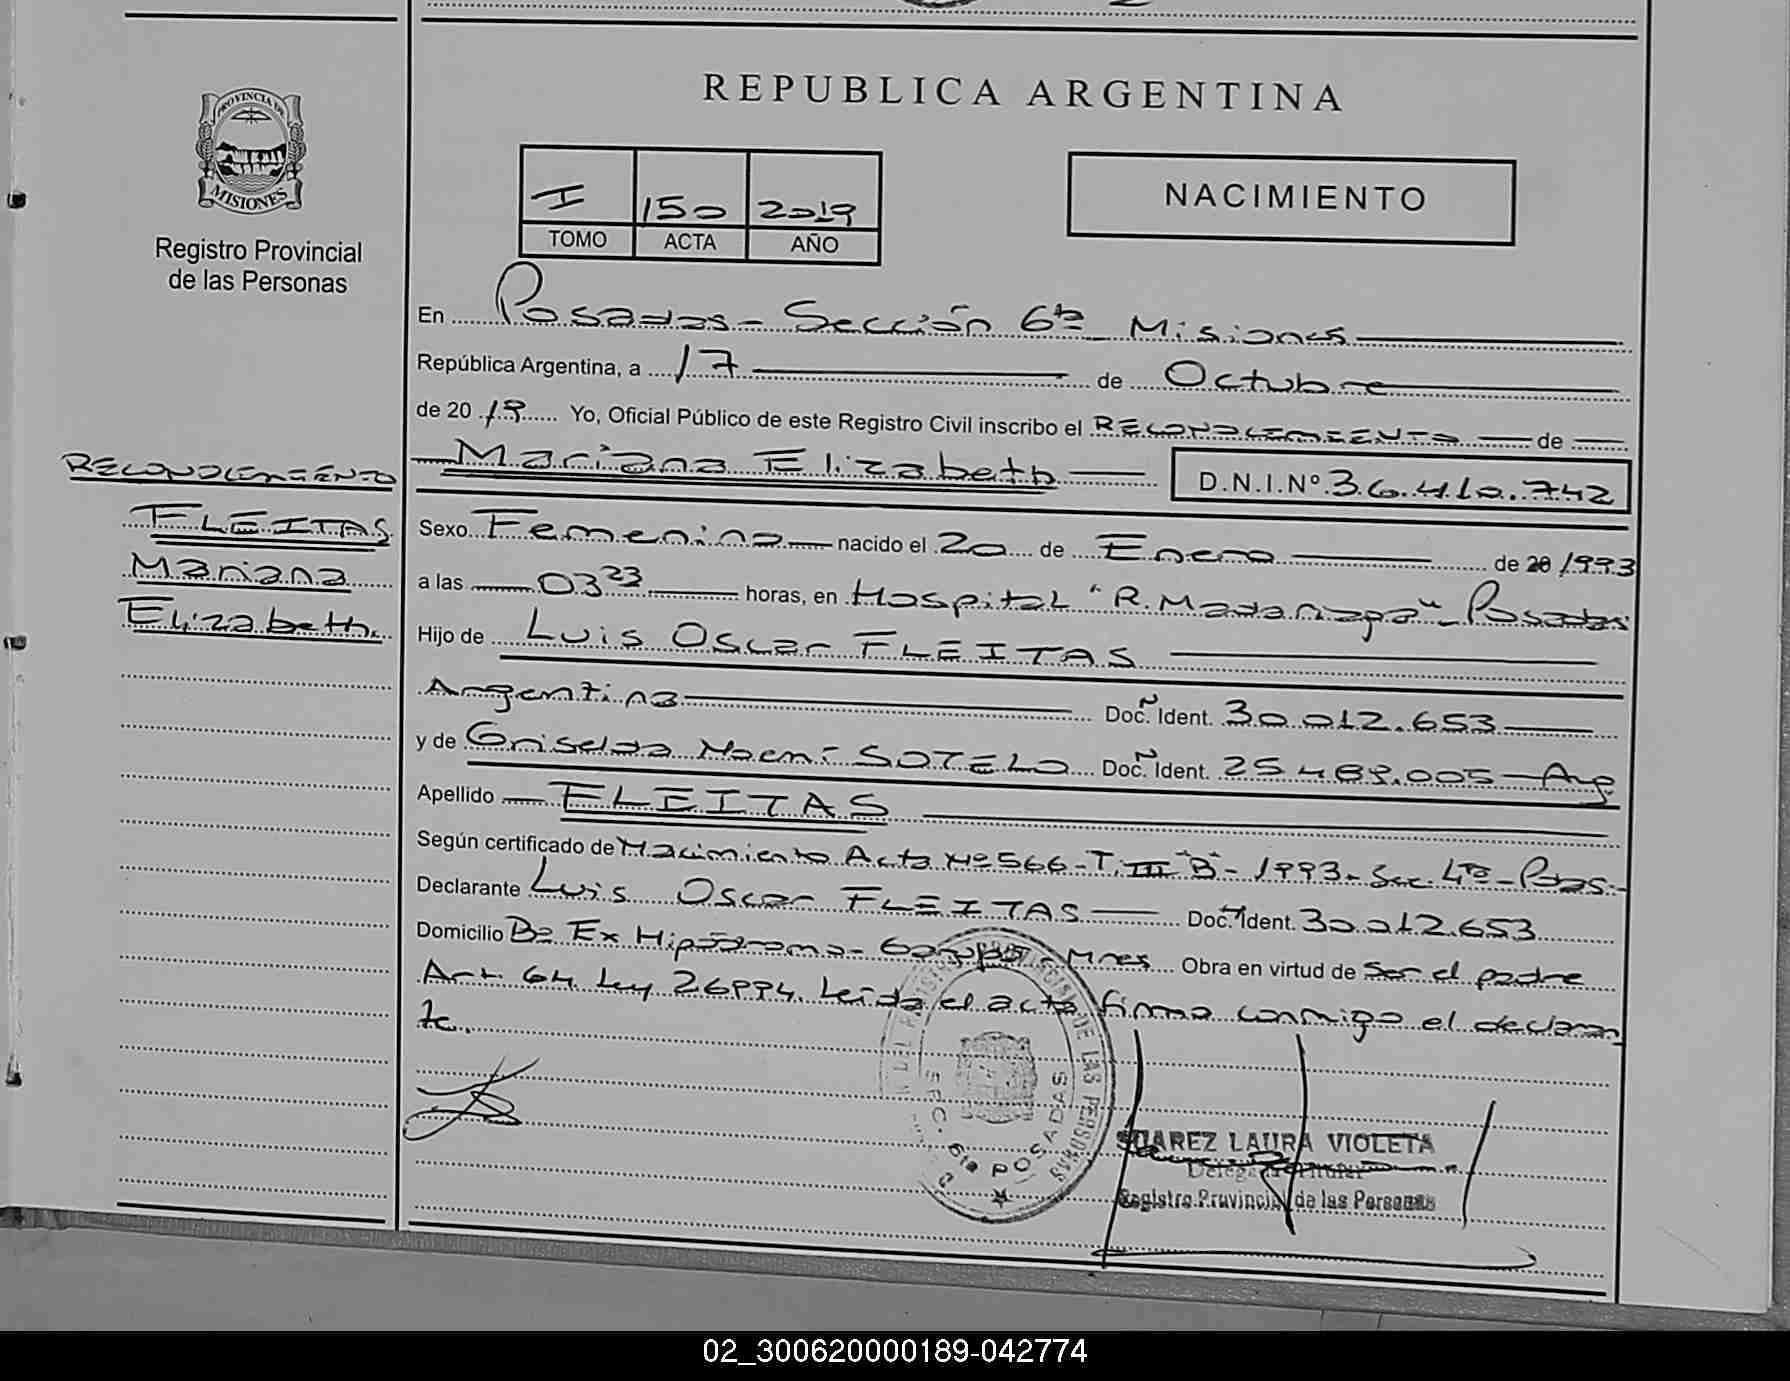 REPUBLICA ARGENTINA
PROVINCIA DE
MISIONES
Registro Provincial
de las Personas
I 150 2019
TOMO ACTA AÑO
NACIMIENTO
En Posadas - Sección 6ta - Misiones
República Argentina, a 17 de Octubre
de 20 19 Yo, Oficial Público de este Registro Civil inscribo el RECONOCIMIENTO de
Mariana Elizabeth D.N.I.Nº 36.410.742
RECONOCIMIENTO
FLEITAS
Mariana
Elizabeth.
Sexo Femenino nacido el 20 de Enero de 20 1993
a las 03 23 horas, en Hospital "R. Madariaga" - Posadas
Hijo de Luis Oscar FLEITAS
Argentina Doc. Ident. 30.012.653
y de Griselda Noemí SOTELO Doc. Ident. 25.489.005 - Arg
Apellido FLEITAS
Según certificado de Nacimiento Acta Nº 566 - T. III "B" - 1993 - Sec 4ta - Pdas. -
Declarante Luis Oscar FLEITAS Doc. Ident. 30.012.653
Domicilio Bº Ex Hipódromo - Garupá - Mnes Obra en virtud de ser el padre
Art. 64 Ley 26994. Leida el acta firma conmigo el declaran
te.
DE LAS PERSONAS
SEC. 6ta POSADAS
SUAREZ LAURA VIOLETA
Delegada Titular
Registro Provincial de las Personas
02_300620000189-042774